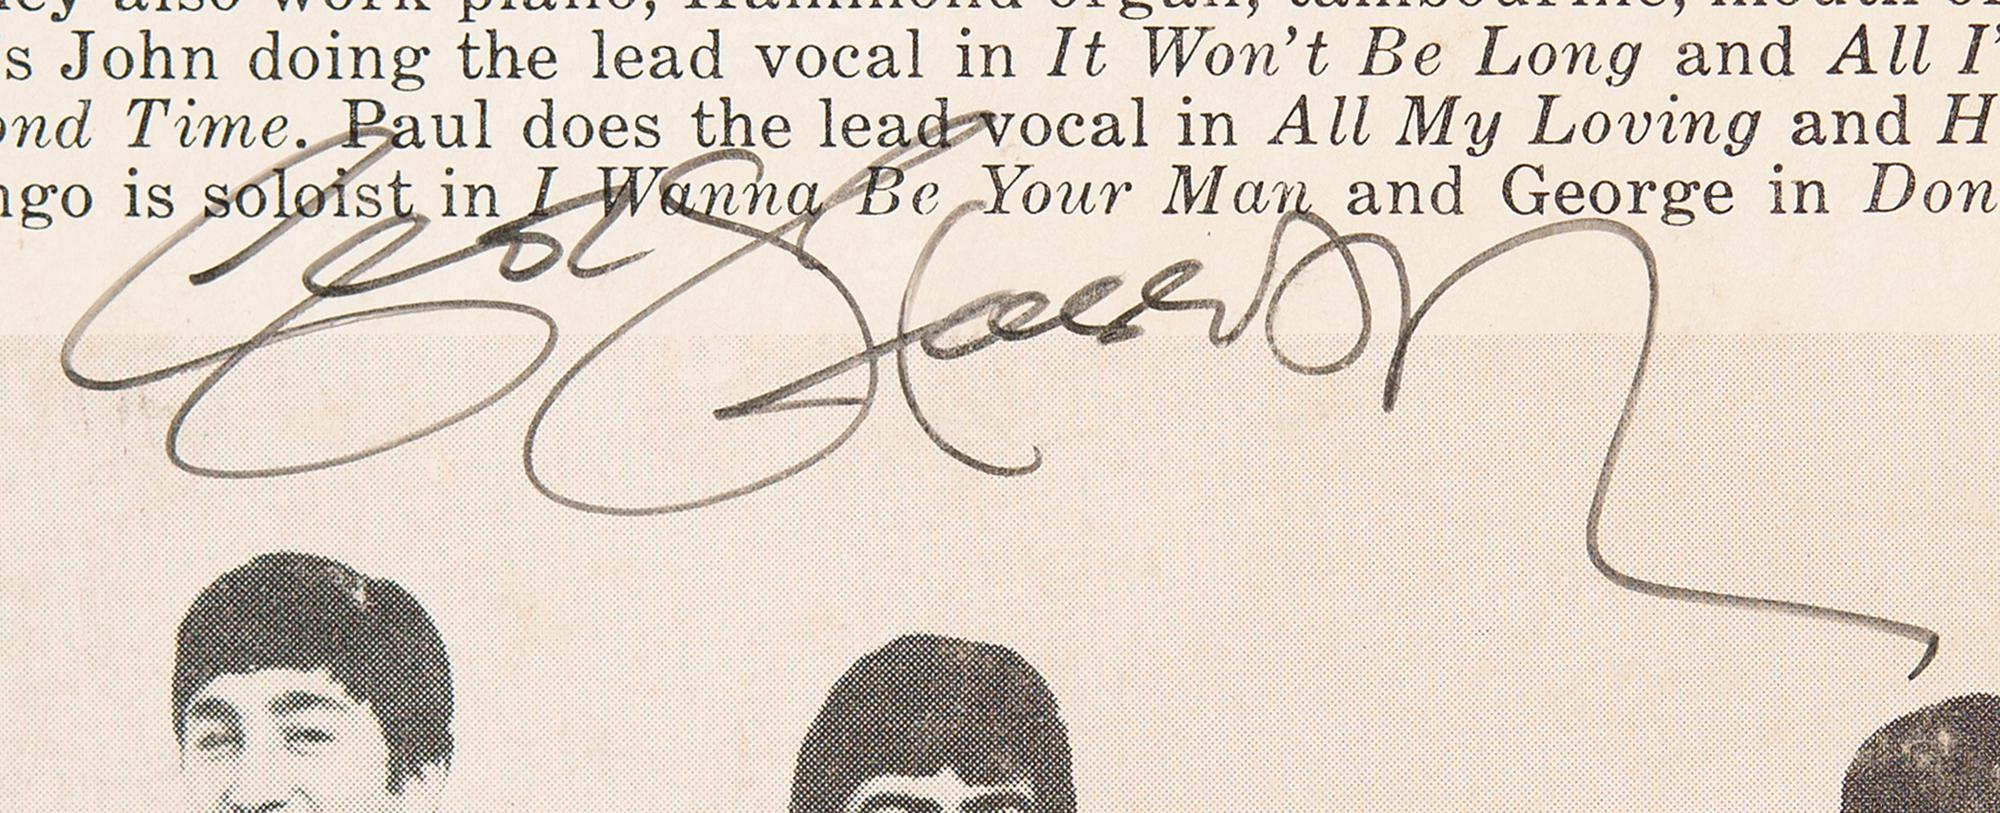 ey also work piano, Hammond organ, tambourine, mouth o
's John doing the lead vocal in It Won't Be Long and All I'
ond Time. Paul does the lead vocal in All My Loving and H
ngo is soloist in I Wanna Be Your Man and George in Don
George Harrison